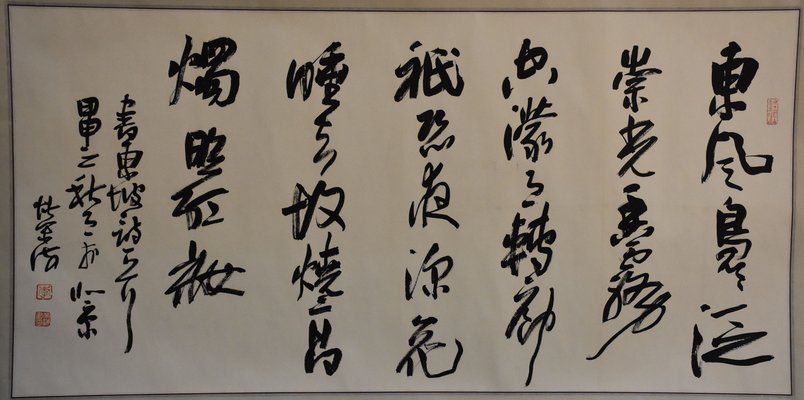 東風裊々泛
崇光香霧
空濛月轉廊
祇恐夜深花
睡去故燒高
燭照紅妝
書東坡詩一首
甲申之秋月於北京